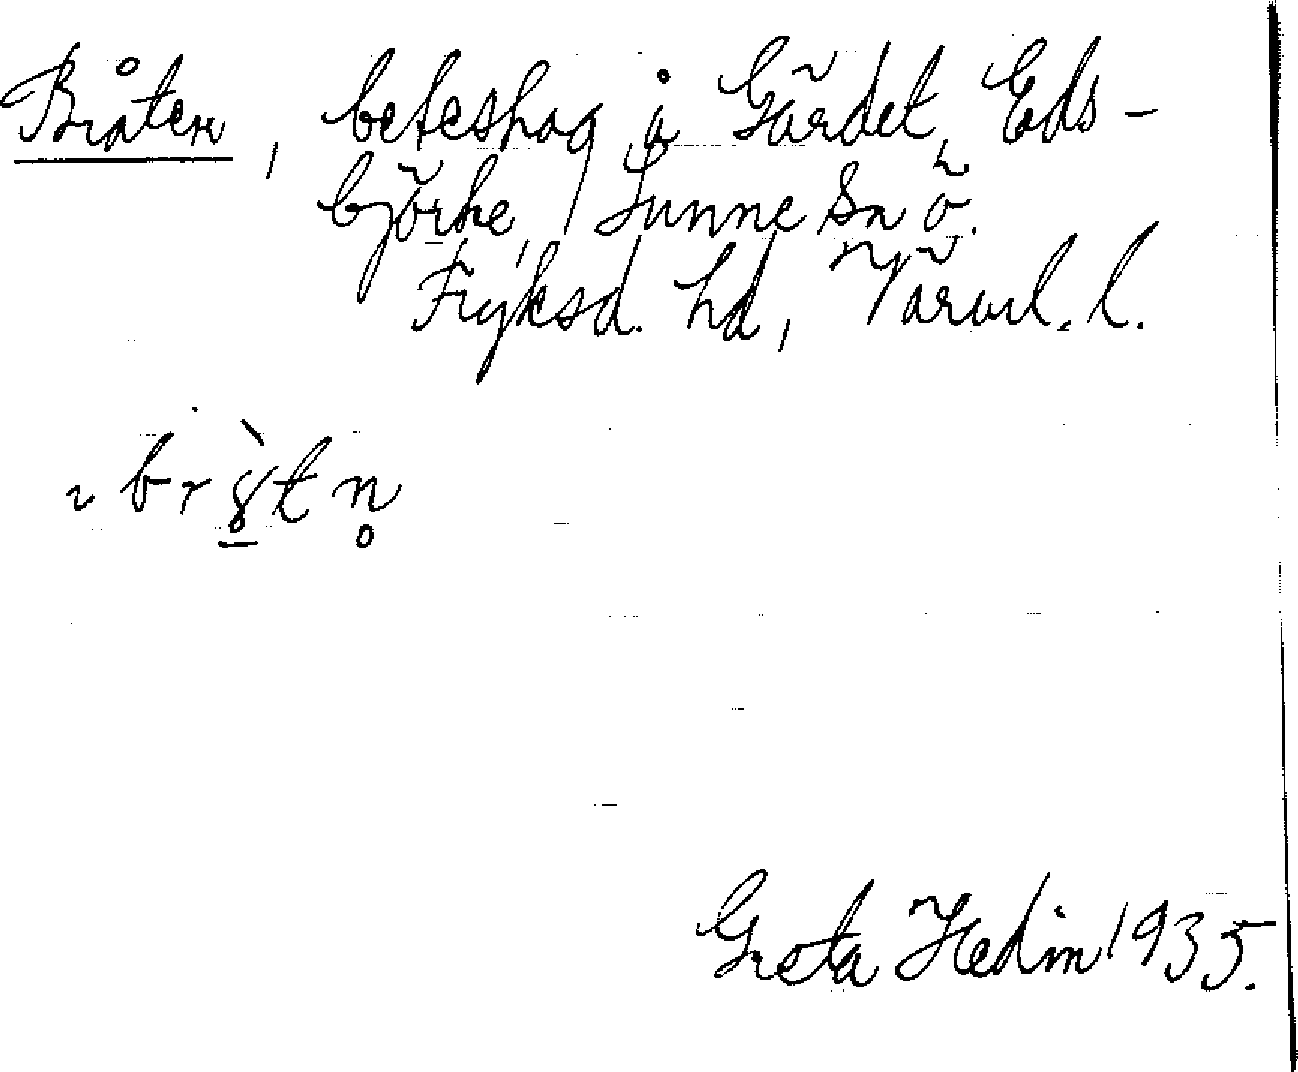 Bråten, beteshag å Gärdet, Eds-
björke, Sunne sn ö.
Fryksd. hd, Värml. l.
Greta Hedin 1935.